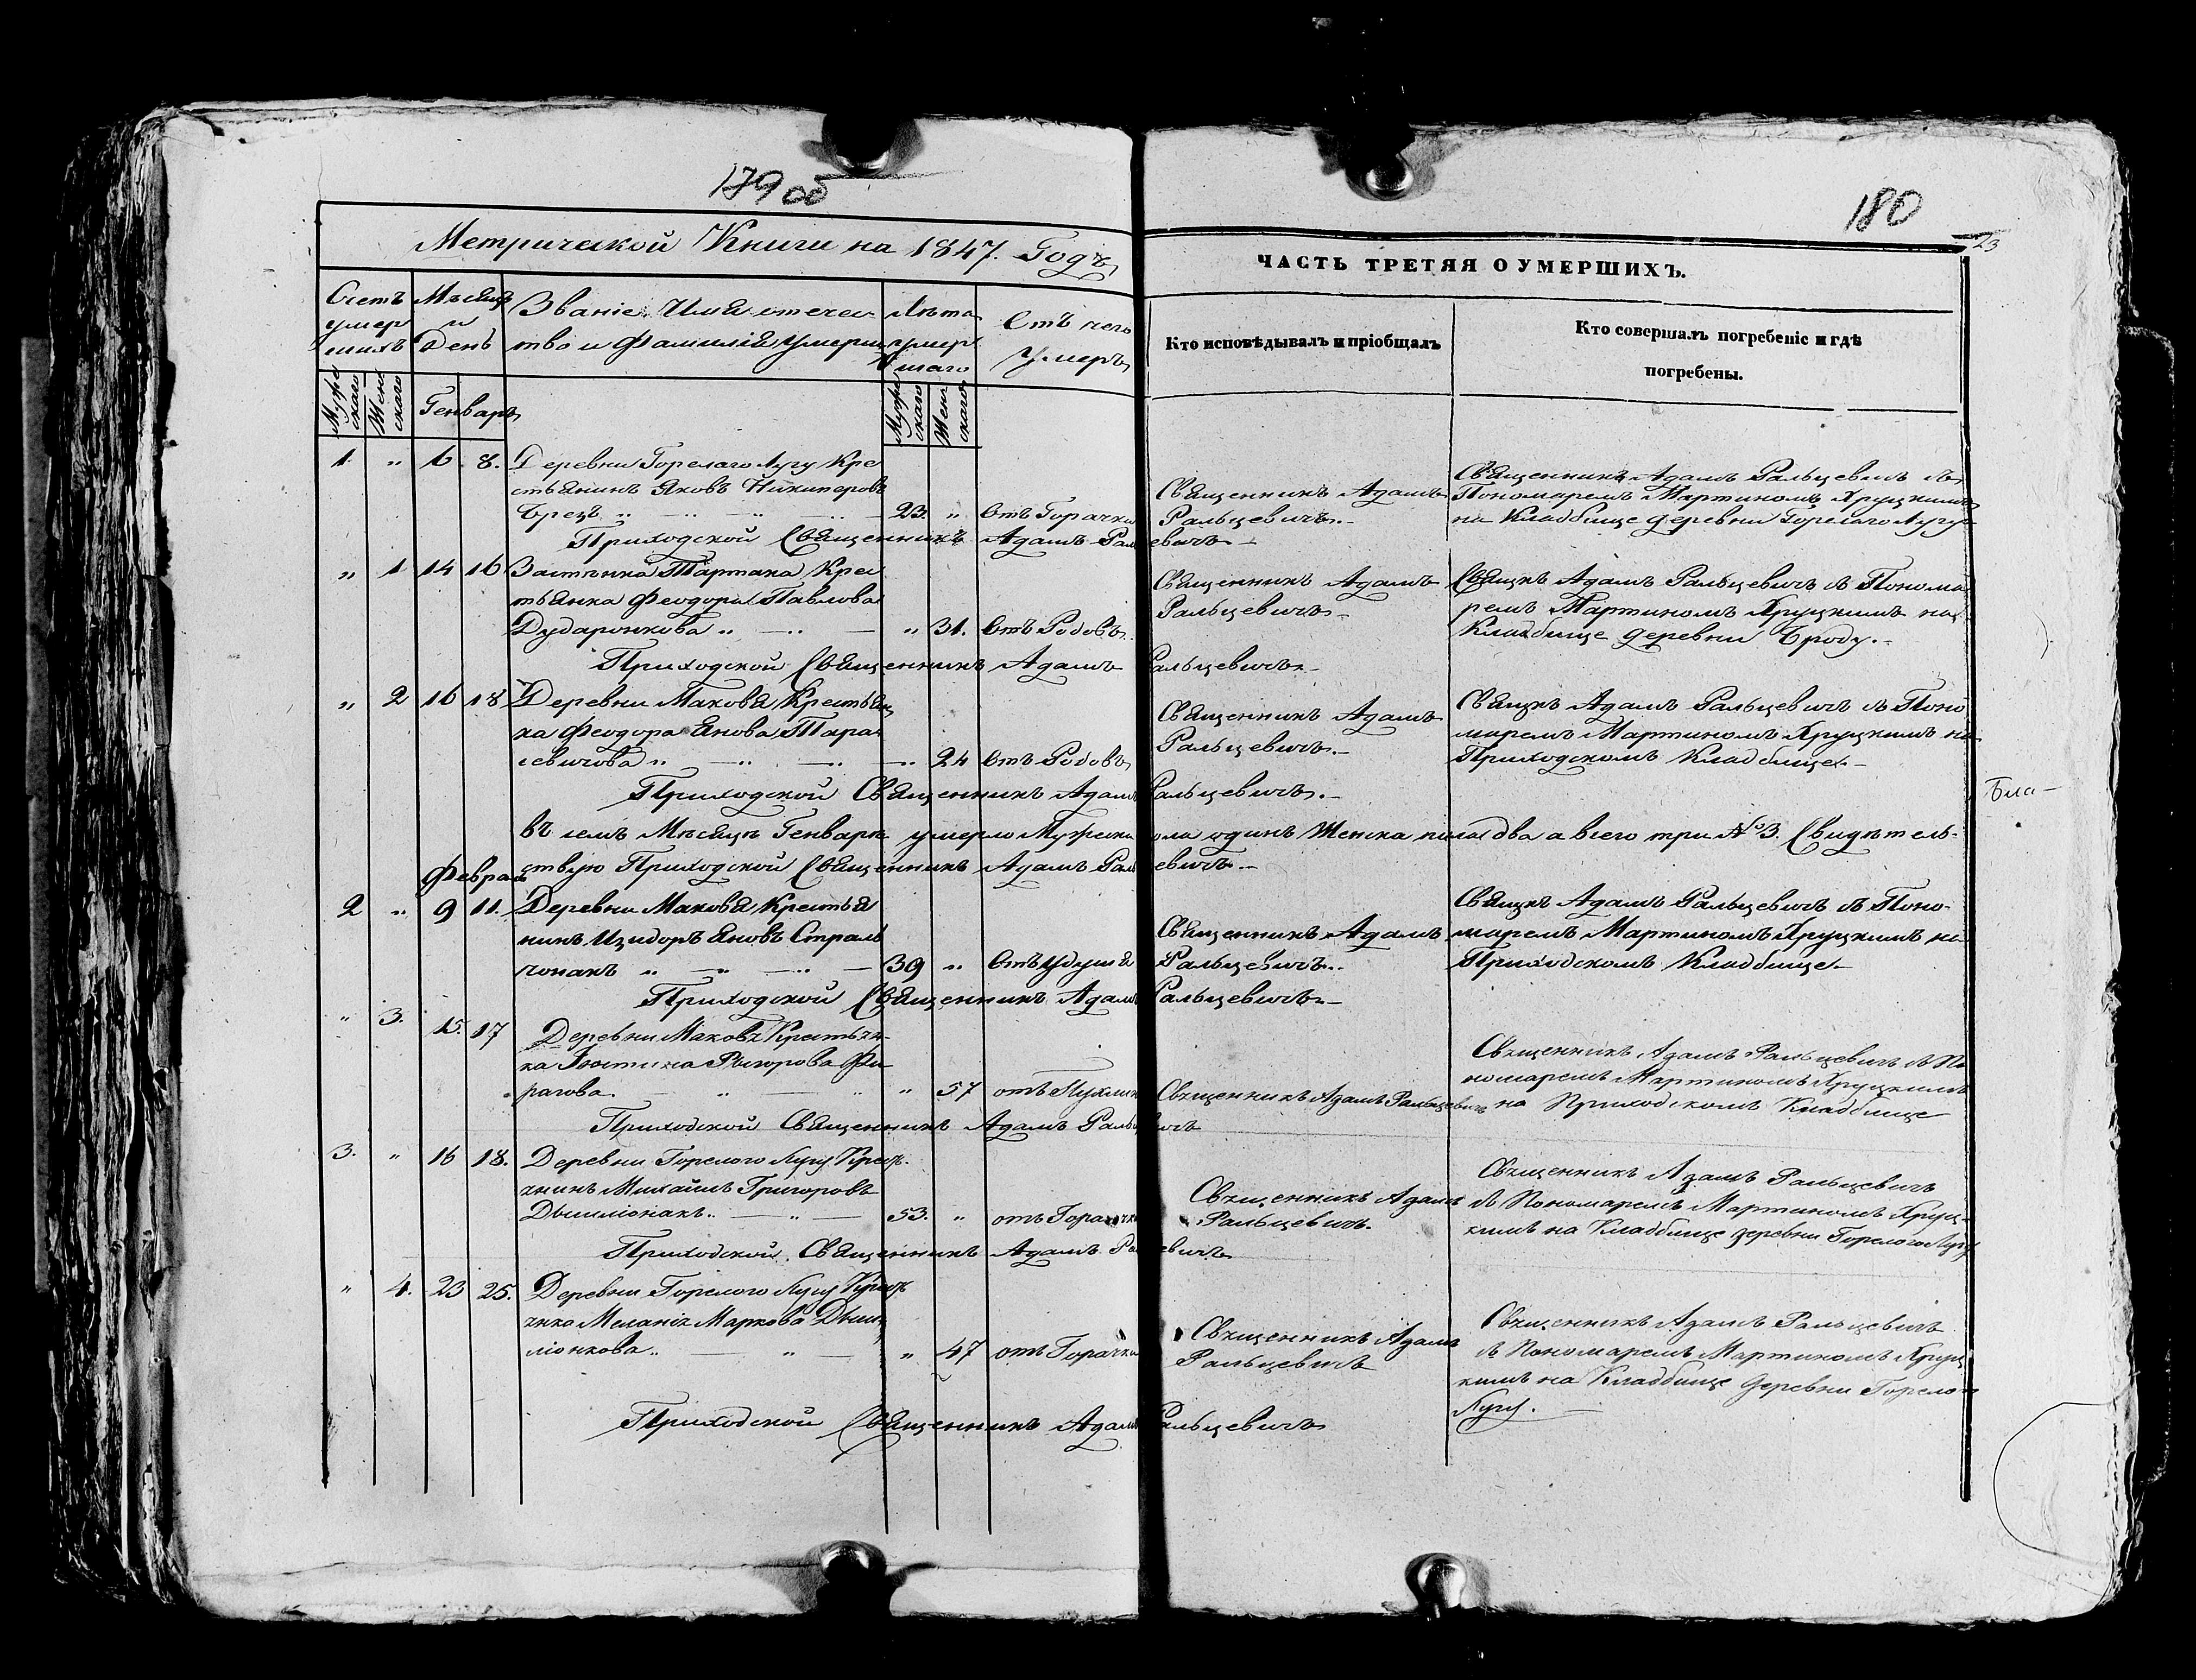 179 об
180
23
Метрической Книги на 1847. Годъ
ЧАСТЬ ТРЕТЯЯ О УМЕРШИХЪ.
Счетъ умер шихъ
Мѣсяцъ и День
Званіе, Имя отечес тво и Фамилія умерш
Лѣта умер шаго
Отъ чего умеръ
Кто исповѣдывалъ и пріобщалъ
Кто совершалъ погребеніе и гдѣ
погребены.
Муже скаго
Жен скаго
Генварь
Муже скаго
Жен скаго
1. " 6 8. Деревни Горелаго Лугу Кре
стьянинъ Яковъ Никипоровъ
23. " Отъ Горачки
Священникъ Адамъ
Ральцевичъ.
Священникъ Адамъ Ральцевичъ съ
Пономаремъ Мартиномъ Хруцкимъ
на Кладбище деревни Горелаго Лугу
Приходской Священникъ Адамъ Ральцевичъ
" 1 14 16 Застѣнка Тартака Крес
тьянка Феодора Павлова
Дударонкова " " 31. Отъ Родовъ
Священникъ Адамъ
Ральцевичъ
Свящкъ Адамъ Ральцевичъ съ Понома
ремъ Мартиномъ Хруцкимъ на
Кладбище деревни Броду.
Приходской Священникъ Адамъ Ральцевичъ
" 2 16 18 Деревни Маковя Крестьян
ка Феодора Янова Тара
севичова " 24 Отъ Родовъ
Священникъ Адамъ
Ральцевичъ.
Свящкъ Адамъ Ральцевичъ съ Поно
маремъ Мартиномъ Хруцкимъ на
Приходскомъ Кладбище
Приходской Священникъ Адамъ Ральцевичъ.
Бла-
въ семъ Мѣсяцѣ Генварѣ умерло Мужеска пола одинъ Женска пола два а всего три №3. Свидѣтель-
ствую Приходской Священникъ Адамъ Ральцевичъ.
Февраль
2 " 9 11. Деревни Маковя Крестья
нинъ Изидоръ Яновъ Страль
чонакъ " 39 " Отъ Удушя
Священникъ Адамъ
Ральцевичъ.
Свящкъ Адамъ Ральцевичъ съ Поно-
маремъ Мартиномъ Хруцкимъ на
Приходскомъ Кладбище.
Приходской Священникъ Адамъ Ральцевичъ
" 3. 15. 17 Деревни Маковя Крестьян-
ка Іюстина Рыгорова Фи
рагова. " 57 отъ Пухлин
Священникъ Адамъ Ральцевичъ
Священникъ Адамъ Ральцевичъ съ По
номаремъ Мартиномъ Хруцкимъ
на Приходскомъ Кладбище
Приходской Священникъ Адамъ Ральцевичъ
3. " 16 18. Деревни Горелого Лугу Крест.
янинъ Михаилъ Григоровъ
53. " отъ Горачки
Священникъ Адамъ
Ральцевичъ.
Священникъ Адамъ Ральцевичъ
съ Пономаремъ Мартиномъ Хруц-
кимъ на Кладбище деревни Горелого Лугу
Приходской Священникъ Адамъ Ральцевичъ
" 4. 23 25. Деревни Горелого Лугу Крест
янка Меланія Маркова
" 47 отъ Горачки
Священникъ Адамъ
Ральцевичъ
Священникъ Адамъ Ральцевичъ
съ Пономаремъ Мартиномъ Хруц
кимъ на Кладбище деревни Горелого
Лугу.
Приходской Священникъ Адамъ Ральцевичъ